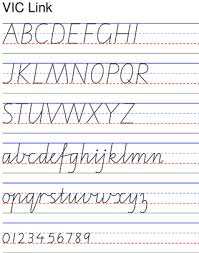 VIC Link
ABCDEFGHI
JKLMNOPQR
STUVWXYZ
abcdefghijklmn
opqrstuvwxyz
0123456789